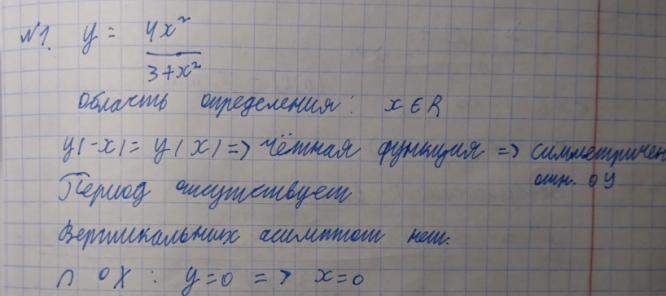 №1. y = 4x² / 3+x²
Область определения: x ∈ R
y(-x) = y(x) => чётная функция => симметричен
отн. OY
Период отсутствует
Вертикальных асимптот нет.
∩ OX : y=0 => x=0